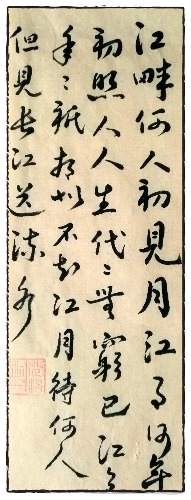 江畔何人初見月江月何年
初照人人生代々無窮已江月
年々祗相似不知江月待何人
但見長江送流水